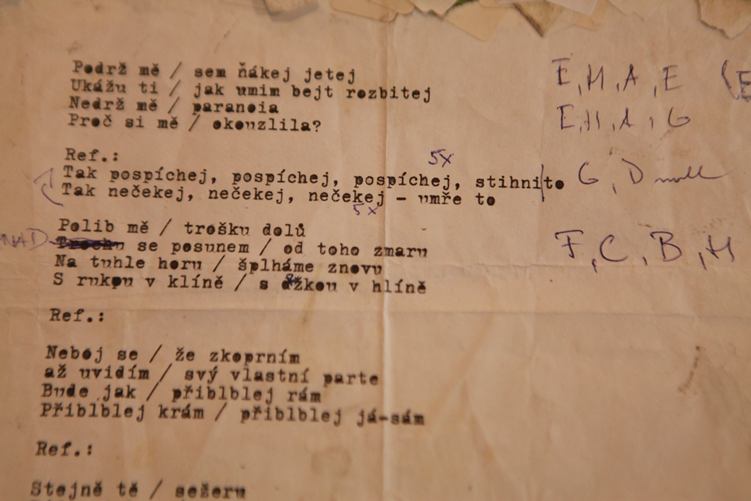 Podrž mě / sem ňákej jetej E, H, A, E (E
Ukážu ti / jak umim bejt rozbitej
Nedrž mě / paranoia E, H, A, G
Proč si mě / okouzlila?
Ref.:
5x
Tak pospíchej, pospíchej, pospíchej, stihni to G, D moll
Tak nečekej, nečekej, nečekej - umře to
5x
Polib mě / trošku dolů
NAD se posunem / od toho zmaru F, C, B, H
Na tuhle horu / šplháme znovu
S rukou v klíně / s ážkou v hlíně
Ref.:
Neboj se / že zkoprním
až uvidím / svý vlastní parte
Bude jak / přiblblej rám
Přiblblej krám / přiblblej já-sám
Ref.:
Stejně tě / sežeru